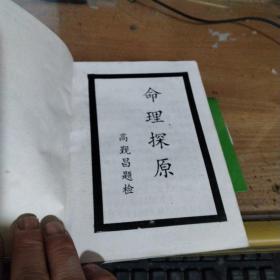 命理探原
高觐昌题检